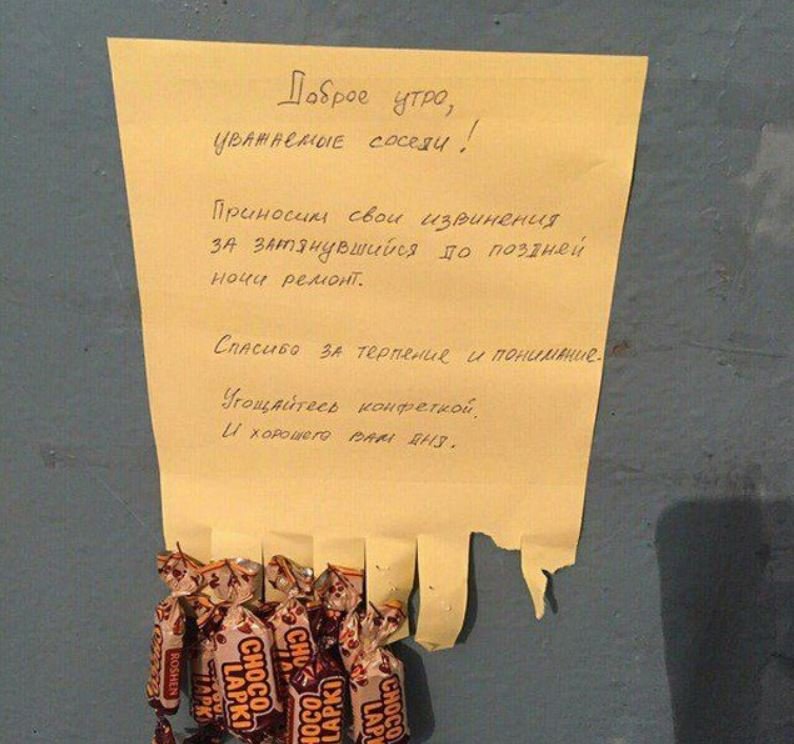 Доброе утро,
уважаемые соседи!
Приносим свои извинения
за затянувшийся до поздней
ночи ремонт.
Спасибо за терпение и понимание.
Угощайтесь конфеткой.
И хорошего вам дня.
ROSHEN
LAPKI
CHOCO
LAPKI
CHO
CHOCO
LAPKI
CHOCO
LAPKI